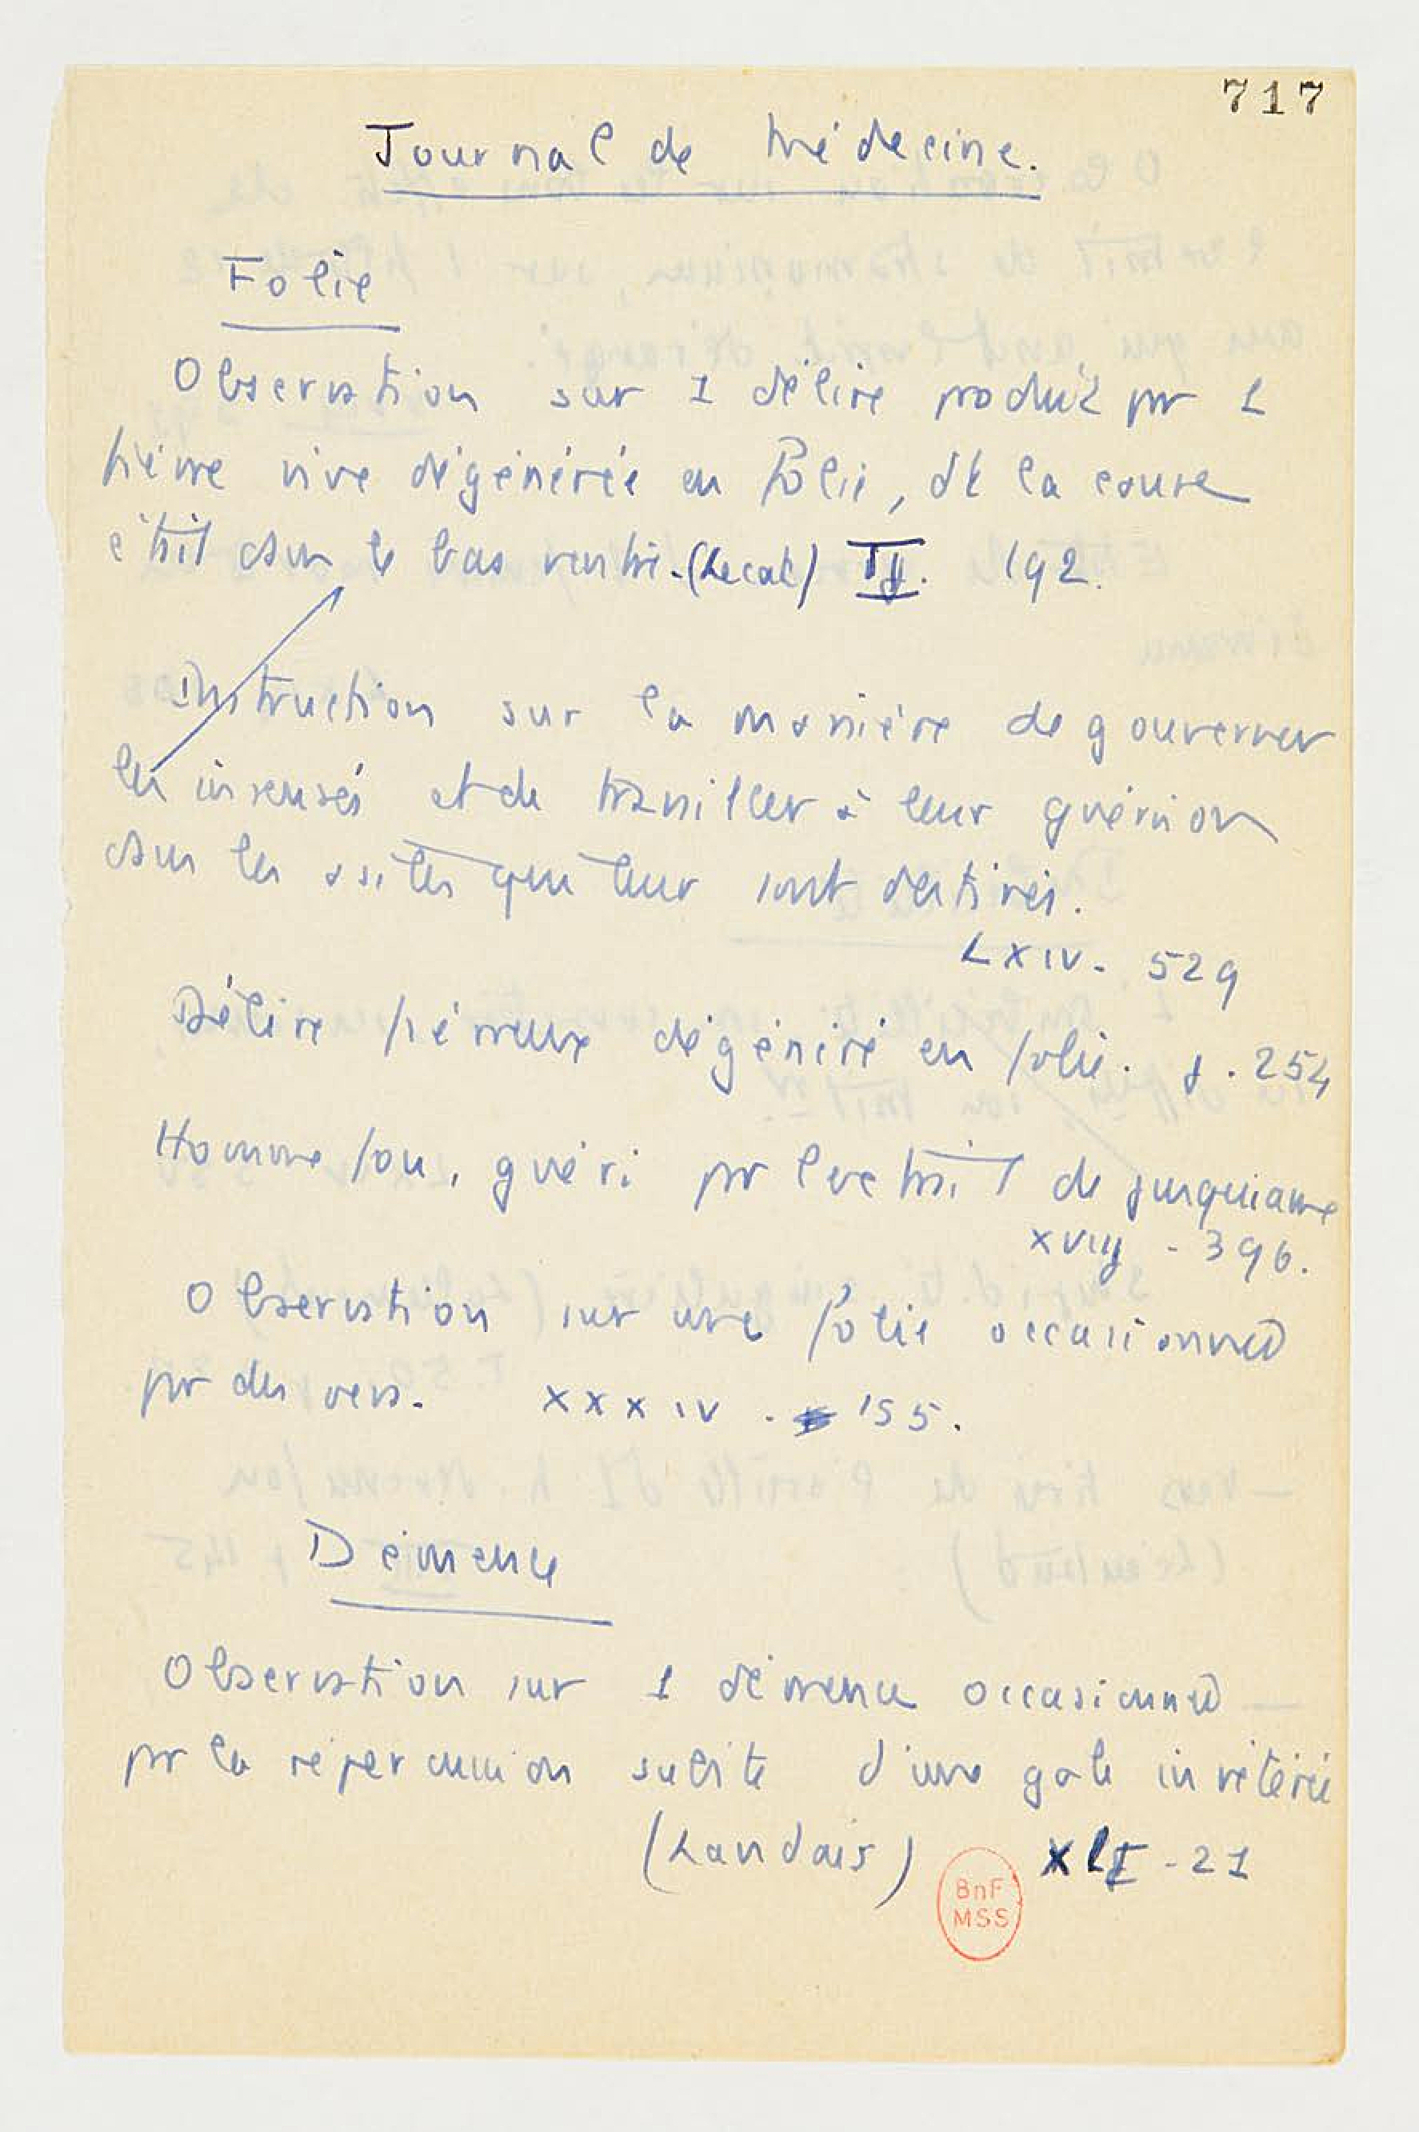 717
Journal de Médecine.
Folie
Observation sur 1 délire produit pr 1
fièvre vive dégénérée en folie, dt la cause
était dans le bas ventre. (Lecat) II. 192.
Instruction sur la manière de gouverner
les insensés et de travailler à leur guérison
dans les asiles qui leur sont destinés.
LXIV. 529
Délire fiévreux dégénéré en folie. j. 254
Homme fou, guéri pr l'extrait de jusquiame
XVIIJ - 396.
Observation sur une folie occasionnée
pr des vers. XXXIV. 155.
Démence
Observation sur 1 démence occasionnée
pr la répercussion subite d'une gale invétérée
(Landais) XLI - 21
BnF
MSS